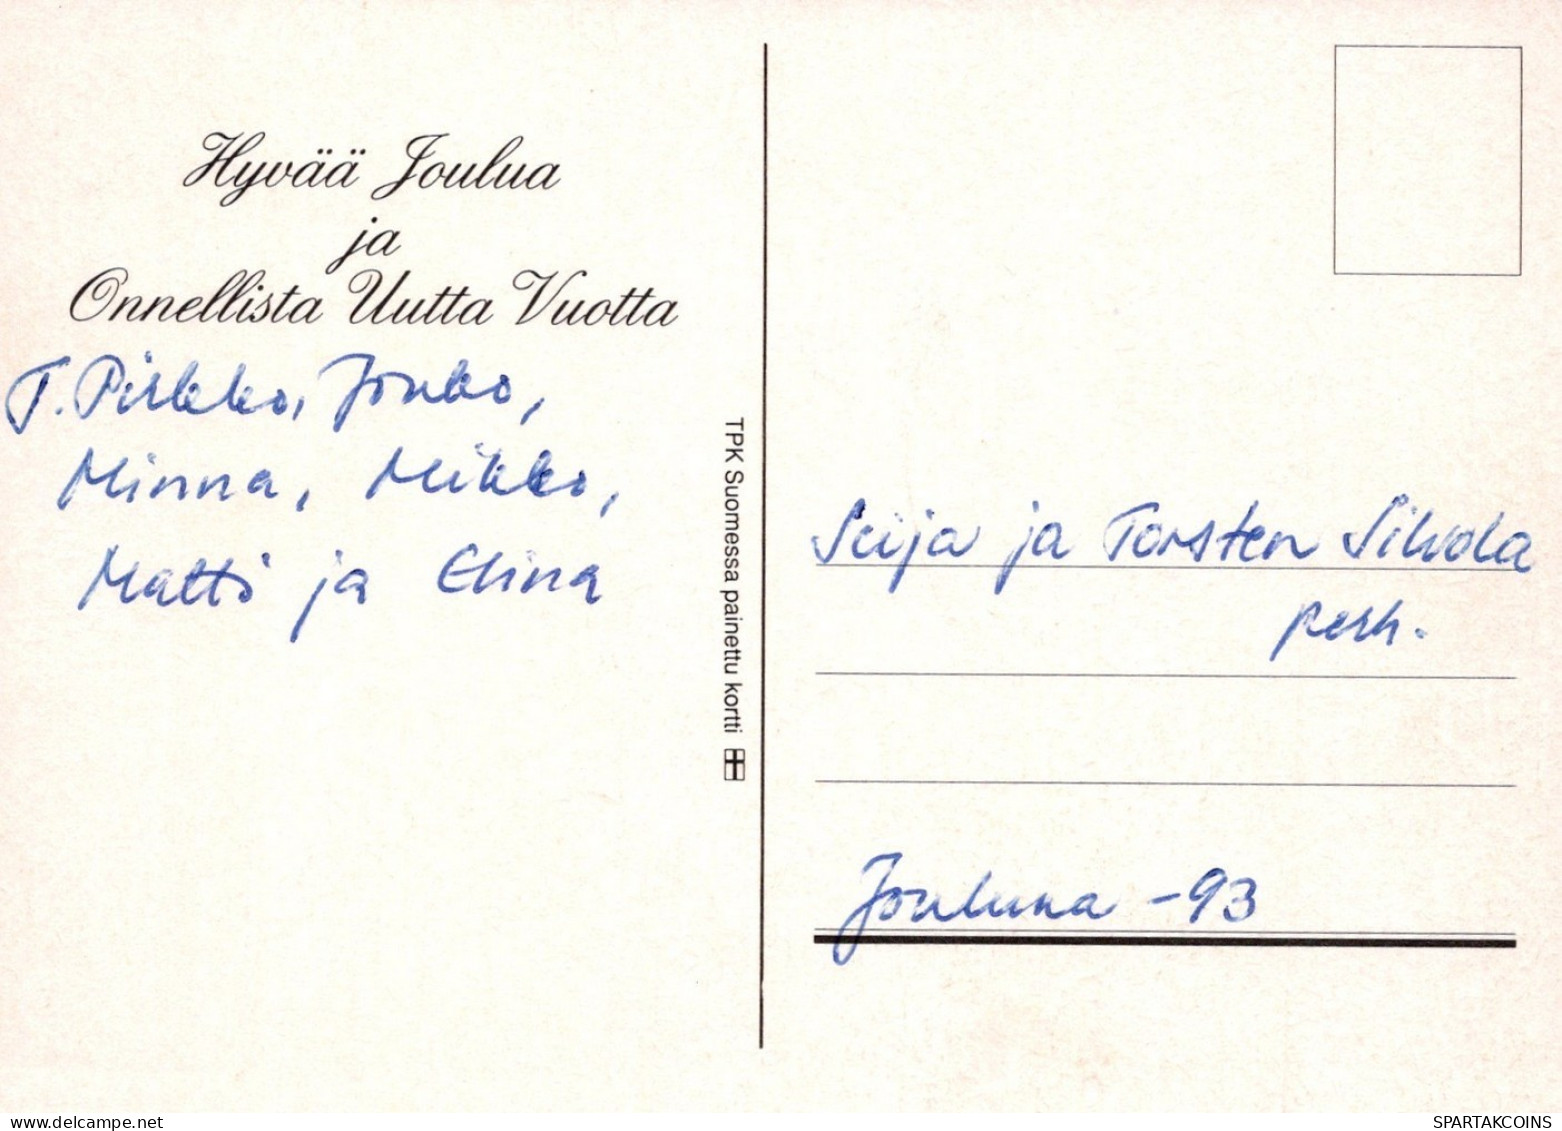 Hyvää Joulua
ja
Onnellista Uutta Vuotta
T. Pirkko, Jouko,
Minna, Mikko,
Matti ja Elina
TPK Suomessa painettu kortti
Seija ja Torsten Silvola
perh.
Jouluna -93
www.delcampe.net
SPARTAKCOINS